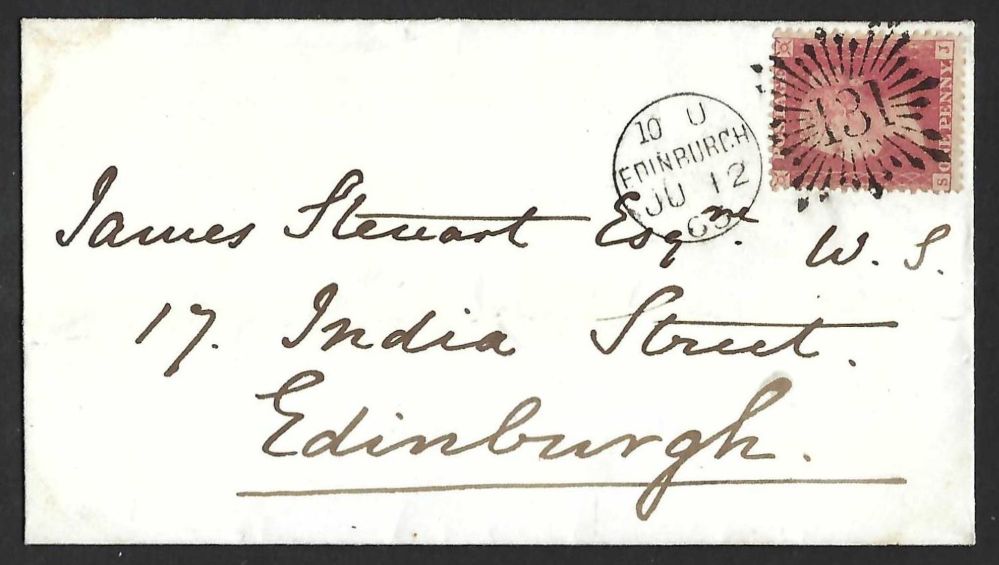 10 U
EDINBURGH
JU 12
63
131
J
S
PENNY
James Stewart Esqre. W. S.
17. India Street.
Edinburgh.